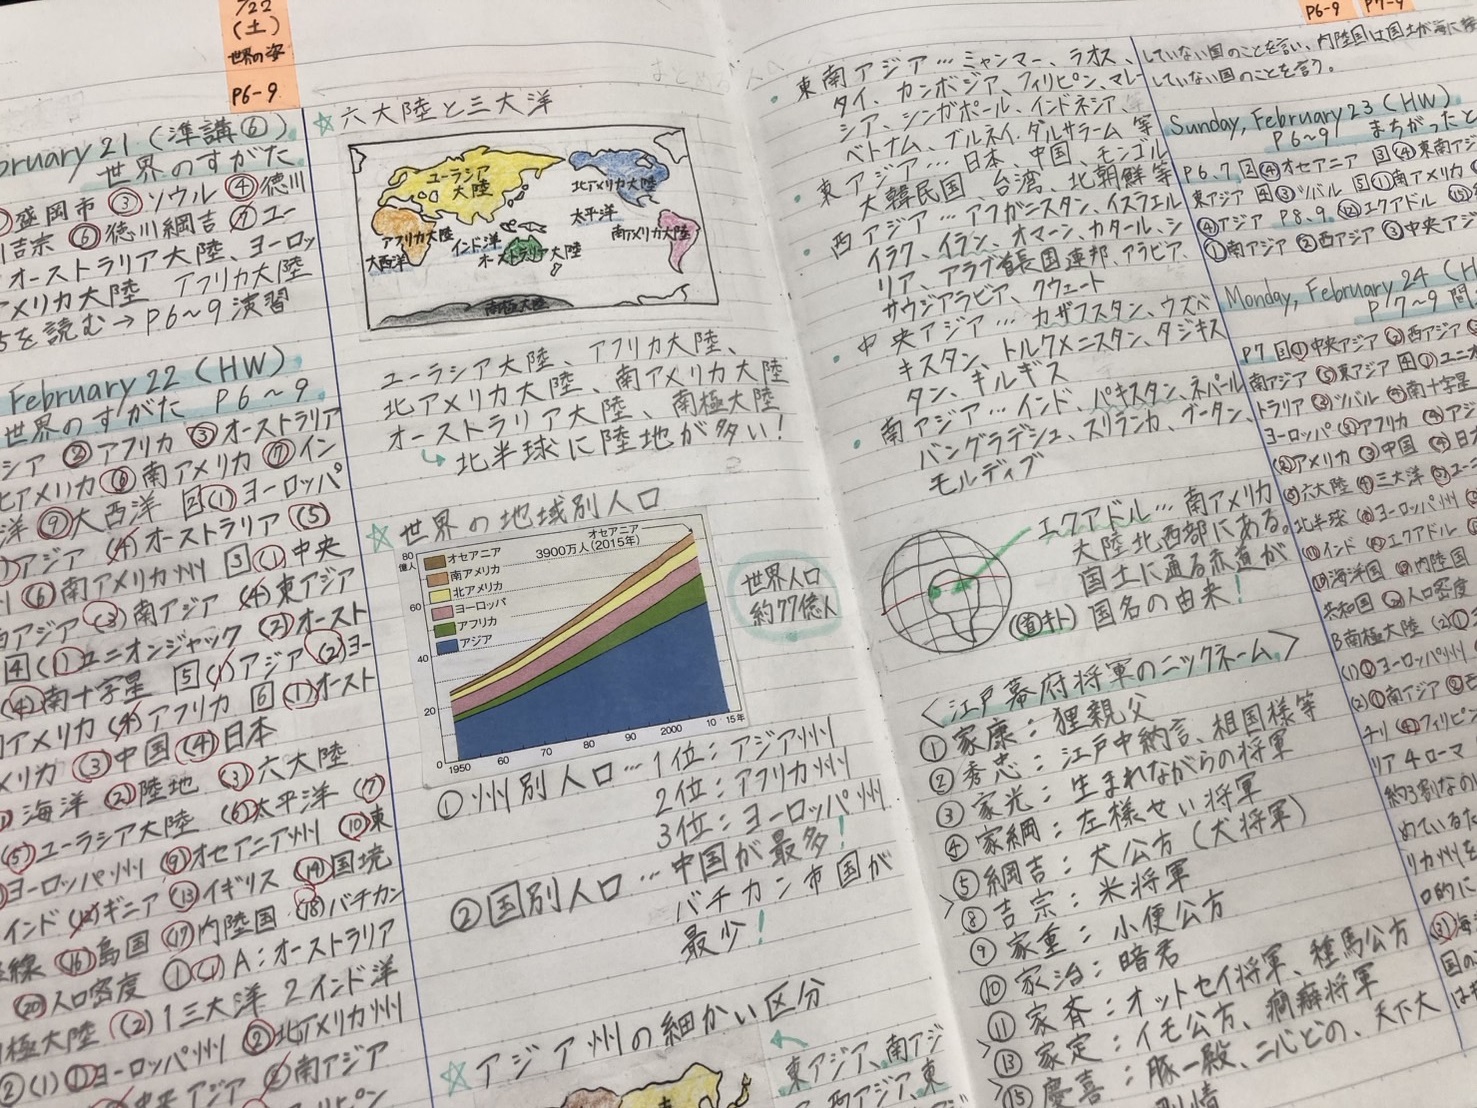 /22
(土)
世界の姿
P6-9
bruary 21 (準講⑥)
世界のすがた
盛岡市 ③ソウル ④徳川
吉宗 ⑥徳川綱吉 ⑦ユー
オーストラリア大陸、ヨーロッ
メリカ大陸 アフリカ大陸
を読む→P6～9演習
February 22 (HW)
世界のすがた P6～9
シア ②アフリカ ③オーストラリア
アメリカ ⑥南アメリカ ⑦イン
洋 ⑨大西洋 2 (1)ヨーロッパ
アジア (4)オーストラリア (5)
(6)南アメリカ州 3 (1)中央
アジア (3)南アジア (4)東アジア
4 (1)ユニオンジャック (2)オースト
(4)南十字星 5 (1)アジア (2)ヨー
アメリカ (4)アフリカ 6 (1)オースト
メリカ (3)中国 (4)日本
海洋 (2)陸地 (3)六大陸
(5)ユーラシア大陸 (6)太平洋 (7)
ヨーロッパ州 (9)オセアニア州 (10)東
インド (12)ギニア (13)イギリス (14)国境
線 (16)島国 (17)内陸国 (18)バチカン
(20)人口密度 ①(1)A:オーストラリア
極大陸 (2)1三大洋 2インド洋
②(1)①ヨーロッパ州 ②北アメリカ州
中央アジア ②南アジア
☆六大陸と三大洋
ユーラシア
大陸
北アメリカ大陸
太平洋
アフリカ大陸
インド洋
南アメリカ大陸
大西洋
オーストラリア大陸
南極大陸
ユーラシア大陸、アフリカ大陸、
北アメリカ大陸、南アメリカ大陸
オーストラリア大陸、南極大陸
↳北半球に陸地が多い!
☆世界の地域別人口
80
億人
60
40
20
0
オセアニア
南アメリカ
北アメリカ
ヨーロッパ
アフリカ
アジア
オセアニア
3900万人(2015年)
1950 60 70 80 90 2000 10 15年
世界人口
約77億人
①州別人口…1位:アジア州
2位:アフリカ州
3位:ヨーロッパ州
②国別人口…中国が最多!
バチカン市国が
最少!
☆アジア州の細かい区分
東アジア、南アジ
ア、西アジア、東
・東南アジア…ミャンマー、ラオス、
タイ、カンボジア、フィリピン、マレー
シア、シンガポール、インドネシア、
ベトナム、ブルネイ・ダルサラーム 等
・東アジア…日本、中国、モンゴル
大韓民国、台湾、北朝鮮等
・西アジア…アフガニスタン、イスラエル
イラク、イラン、オマーン、カタール、シ
リア、アラブ首長国連邦、アラビア、
サウジアラビア、クウェート
・中央アジア…カザフスタン、ウズベ
キスタン、トルクメニスタン、タジキス
タン、キルギス
・南アジア…インド、パキスタン、ネパール
バングラデシュ、スリランカ、ブータン、
モルディブ
エクアドル…南アメリカ
大陸北西部にある。
国土に通る赤道が
国名の由来!
<江戸幕府将軍のニックネーム>
①家康:狸親父
②秀忠:江戸中納言、相国様等
③家光:生まれながらの将軍
④家綱:左様せい将軍
⑤綱吉:犬公方(犬将軍)
⑧吉宗:米将軍
⑨家重:小便公方
⑩家治:暗君
⑪家斉:オットセイ将軍、種馬公方
⑬家定:イモ公方、癇癪将軍
⑮慶喜:豚一殿、二心どの、天下大
P6-9 P7-9
していない国のことを言い、内陸国は国土が海に
していない国のことを言う。
Sunday, February 23 (HW)
P6～9 まちがったと
P6.7 2 ④オセアニア 3 ④東南アジ
東アジア 4 ③ツバル 5 ①南アメリカ
④アジア P8.9 ⑫エクアドル
①南アジア ②西アジア ③中央アジ
Monday, February 24 (H
P7～9 問
P7 3 ①中央アジア ②西アジア
南アジア ⑤東アジア 4 ①ユニオ
トラリア ③ツバル ④南十字星
ヨーロッパ ②アフリカ
②アメリカ ③中国 ④日
六大陸 ④三大洋 ⑤ユー
北半球 ⑧ヨーロッパ州
インド エクアドル
海洋国 内陸国
共和国 人口密度
B南極大陸 (2)①
(1)①ヨーロッパ州
(2)①南アジア
チリ ④フィリピン
リア 4 ローマ
約3割なの
めているた
リカ州を